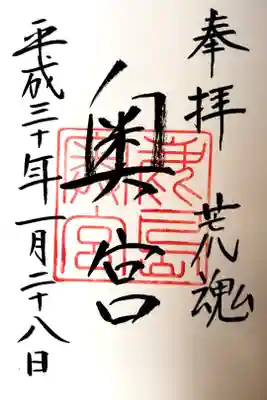 奉拝 荒魂
奥宮
平成三十年一月二十八日